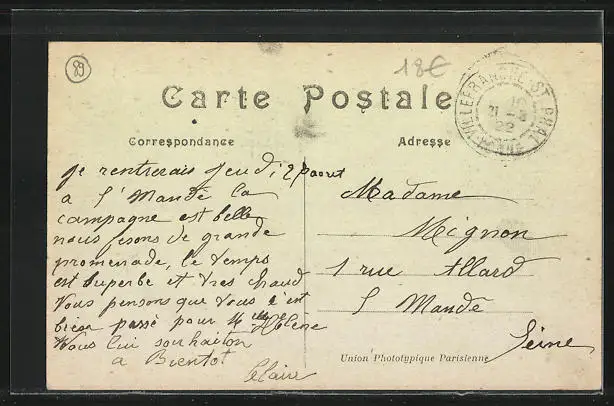 89
18€
Carte Postale
VILLEFRANCHE-ST-PHAL
YONNE
21 -8
22
Correspondance
Adresse
Je rentrerais Jeudi, 2
a St Mandé la
campagne est belle
nous fesons de grande
promenade, le temps
est superbe et tres chaud
Nous pensons que tous c'est
bien passé pour Melle Hélène
Nous lui souhaiton
a Bientot
Claire
Madame
Mignon
1 rue Allard
St Mande
Seine
Union Phototypique Parisienne